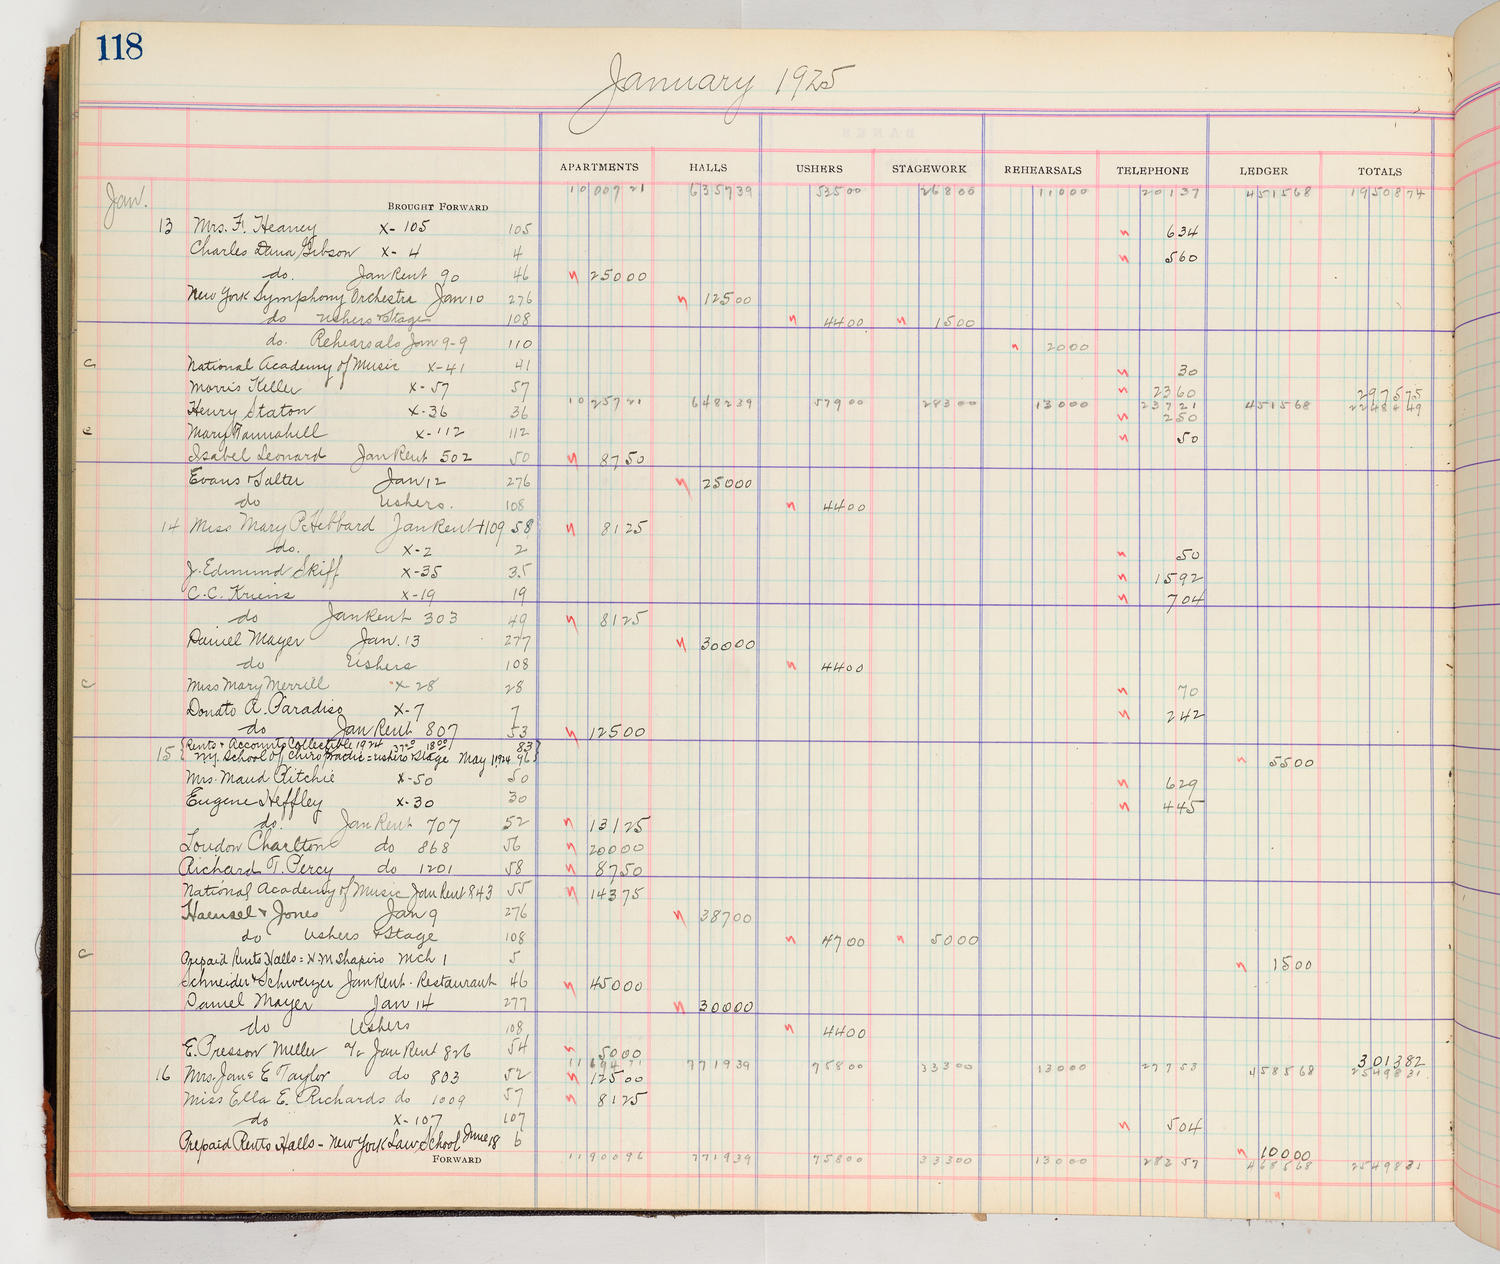 118
January 1925
APARTMENTS HALLS USHERS STAGEWORK REHEARSALS TELEPHONE LEDGER TOTALS
Jan. BROUGHT FORWARD 1000921 635739 53500 26800 11000 20137 451568 1950874
13 Mrs. F. Heaney X-105 105 634
Charles Dana Gibson X-4 4 560
do. Jan Rent 90 46 25000
New York Symphony Orchestra Jan 10 276 12500
do Ushers & Stage 108 4400 1500
do. Rehearsals Jan 9-9 110 2000
c National Academy of Music X-41 41 30
Morris Keller X-57 57 2360 297575
1025721 648239 57900 28300 13000 23721 451568
Henry Staton X-36 36 250
c Mary Tannahill X-112 112 50
Isabel Leonard Jan Rent 502 50 8750
Evans & Salter Jan 12 276 25000
do Ushers. 108 4400
14 Miss Mary P. Hebbard Jan Rent 1109 58 8125
do. X-2 2 50
J. Edmund Skiff X-35 35 1592
C.C. X-19 19 704
do Jan Rent 303 49 8125
Daniel Mayer Jan. 13 277 30000
do Ushers 108 4400
c Miss Mary Merrill X-28 28 70
Donato A. Paradiso X-7 7 242
do Jan Rent 807 53 12500
15 Rents & Accounts Collectible 1924 37⁰⁰ 18⁰⁰ 83
N.Y. School of Chiropractic = ushers & Stage May 1 1924 96 5500
Mrs. Maud Ritchie X-50 50 629
Eugene Heffley X-30 30 445
do. Jan Rent 707 52 13125
Loudon Charlton do 868 56 20000
Richard T. Percy do 1201 58 8750
National Academy of Music Jan Rent 843 55 14375
Haensel & Jones Jan 9 276 38700
do Ushers & Stage 108 4700 5000
c Prepaid Rents Halls = N.M Shapiro Mch 1 5 1500
Schneider & Schwerzer Jan Rent. Restaurant 46 45000
Daniel Mayer Jan 14 277 30000
do Ushers 108 4400
E. Presson Miller a/c Jan Rent 826 54 5000 301382
771939 75800 33300 13000 27753 458568 2549831
16 Mrs. Jane E Taylor do 803 52 12500
Miss Ella E. Richards do 1009 57 8125
do X-107 107 504
Prepaid Rents Halls - New York Law School June 18 6 10000
FORWARD 1190096 771939 75800 33300 13000 28257 468568 2549831